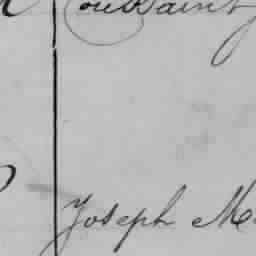 Toussaint
Joseph M